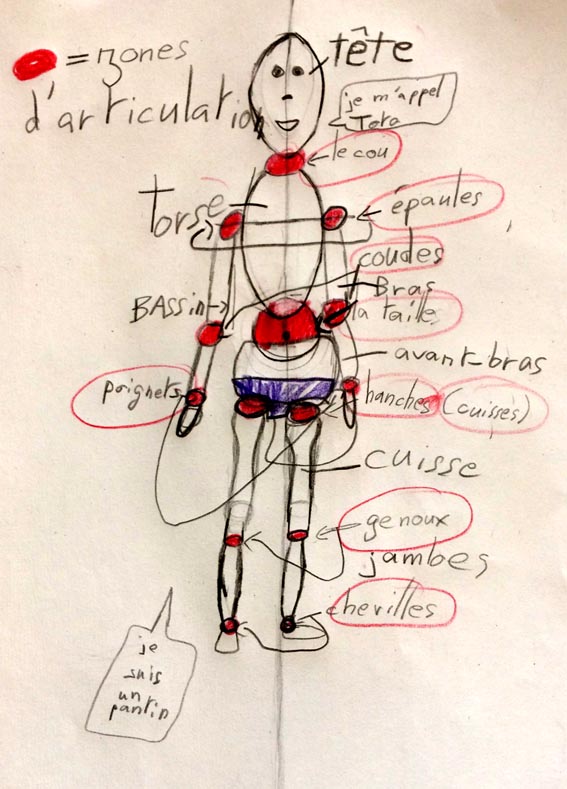 = zones
d'articulation
tête
je m'appel
Toto
le cou
Torse
épaules
coudes
Bras
BASSin
la taille
avant-bras
poignets
hanches (cuisses)
cuisse
genoux
jambes
chevilles
je
suis
un
pantin